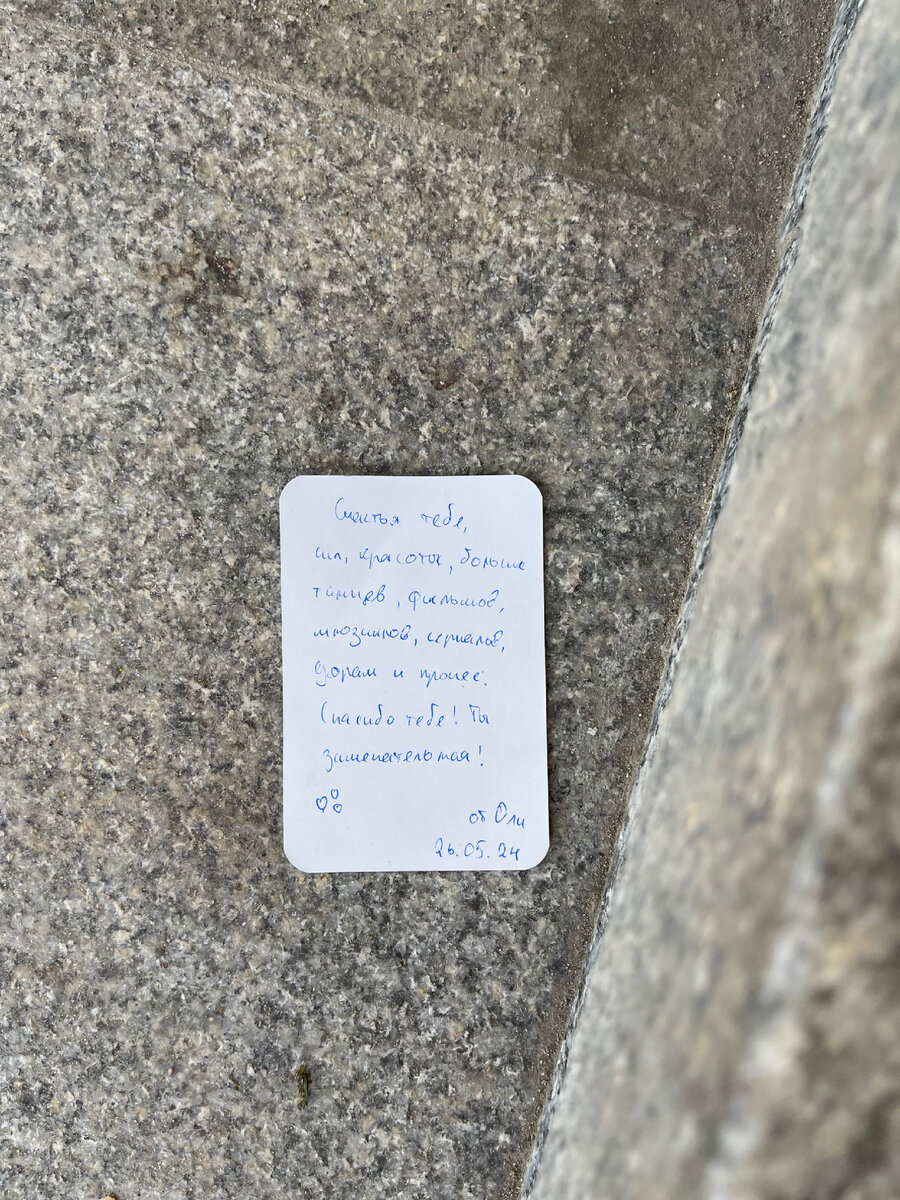 Счастья тебе,
сил, красоты, больше
танцев, фильмов,
мюзиклов, сериалов,
дорам и прочее.
Спасибо тебе! Ты
замечательная!
от Оли
26.05.24